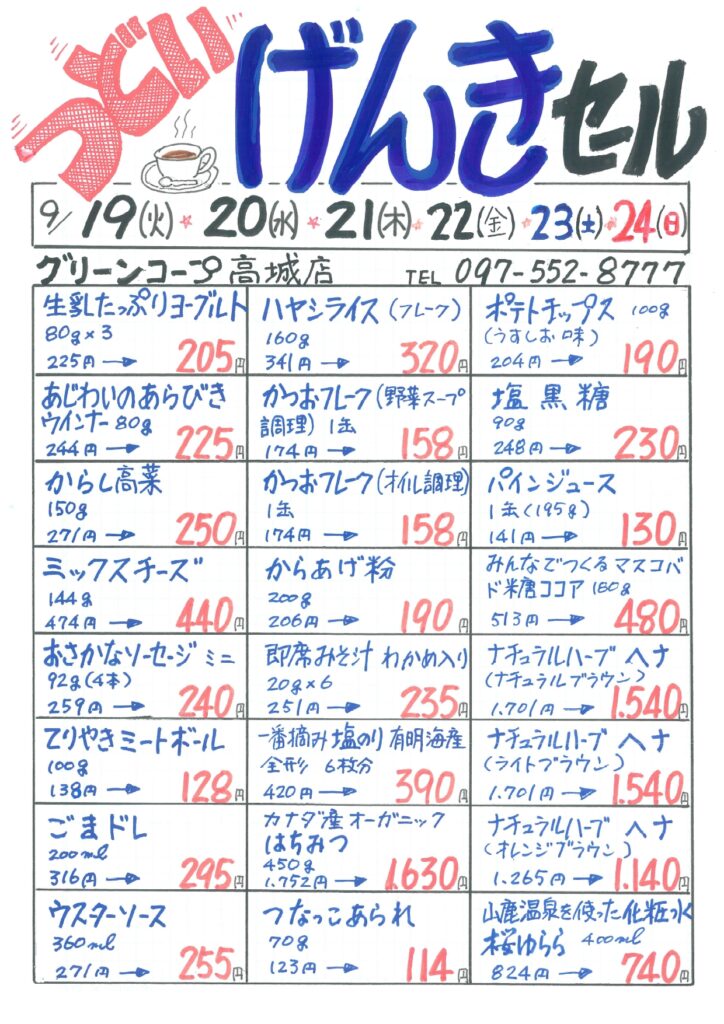 つどい
げんきセール
9/19(火)*20(水)*21(木)*22(金)*23(土)*24(日)
グリーンコープ高城店 TEL 097-552-8777
生乳たっぷりヨーグルト
80g×3
225円→205円
ハヤシライス(フレーク)
160g
341円→320円
ポテトチップス 100g
(うすしお味)
204円→190円
あじわいのあらびき
ウインナー80g
244円→225円
かつおフレーク(野菜スープ
調理)1缶
174円→158円
塩黒糖
90g
248円→230円
からし高菜
150g
271円→250円
かつおフレーク(オイル調理)
1缶
174円→158円
パインジュース
1缶(195g)
141円→130円
ミックスチーズ
144g
474円→440円
からあげ粉
200g
206円→190円
みんなでつくるマスコバ
ド糖ココア
513円→480円
おさかなソーセージミニ
92g(4本)
259円→240円
即席みそ汁 わかめ入り
20g×6
251円→235円
ナチュラルハーブ ヘナ
(ナチュラルブラウン)
1.701円→1.540円
てりやきミートボール
100g
138円→128円
一番摘み塩のり 有明海産
全形 6枚分
420円→390円
ナチュラルハーブ ヘナ
(ライトブラウン)
1.701円→1.540円
ごまドレ
200ml
316円→295円
カナダ産オーガニック
はちみつ
450g
1.752円→1.630円
ナチュラルハーブ ヘナ
(オレンジブラウン)
1.265円→1.140円
ウスターソース
360ml
271円→255円
つなっこあられ
70g
123円→114円
山鹿温泉を使った化粧水
桜ゆらら 400ml
824円→740円